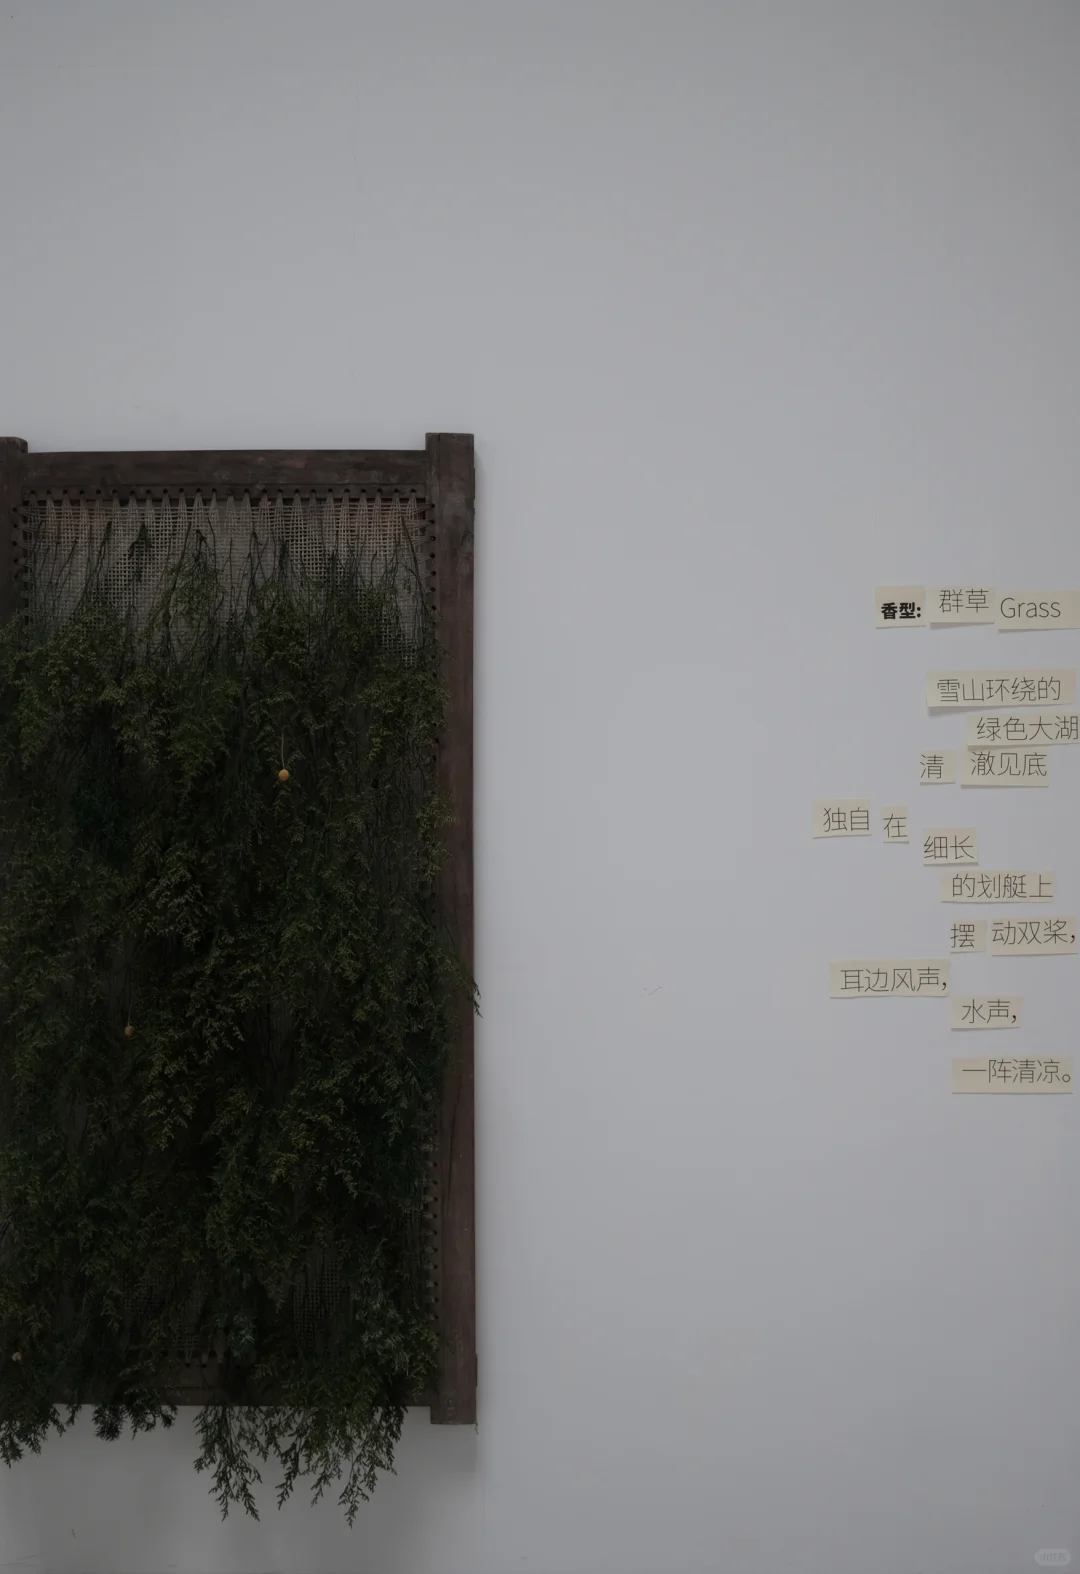 香型: 群草 Grass
雪山环绕的
绿色大湖
清 澈见底
独自 在
细长
的划艇上
摆 动双桨,
耳边风声,
水声,
一阵清凉。
小红书